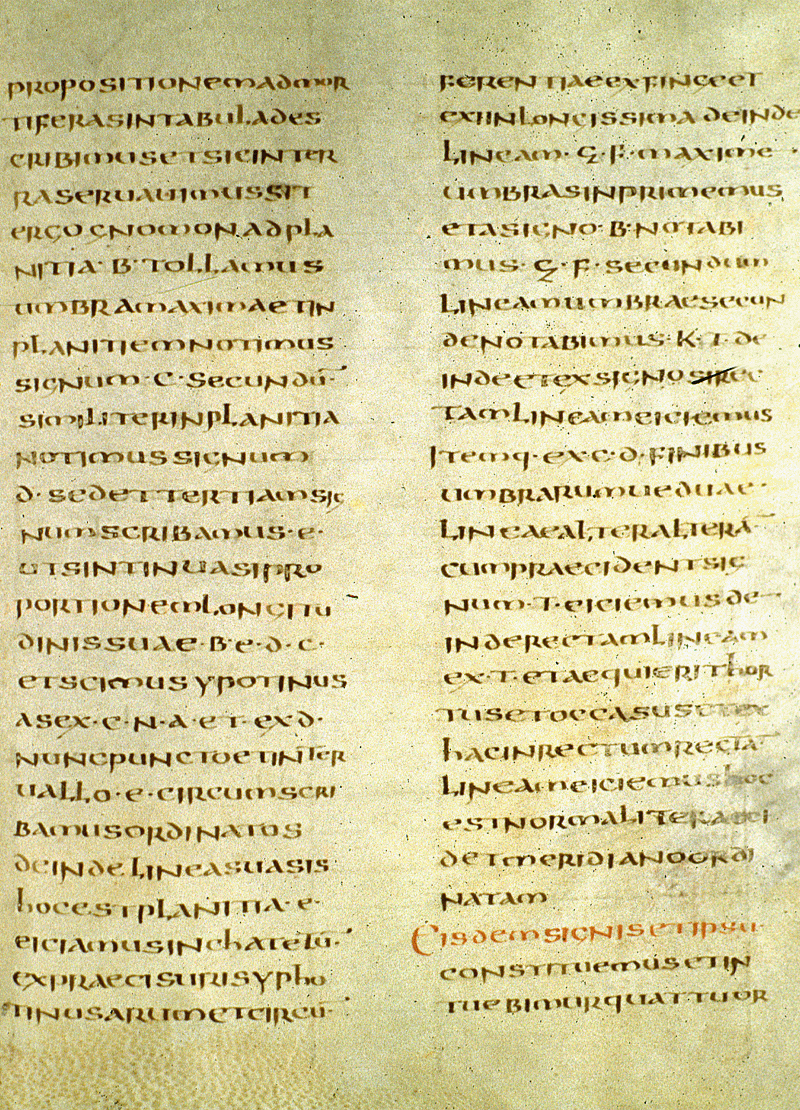 PROPOSITIONEMADMOR
TIFERASINTABULADES
CRIBIMUSETSICINTER
RASERUAUIMUSSIT
ERGOGNOMONADPLA
NITIA·B·TOLLAMUS
UMBRAMAXIMAETIN
PLANITIEMNOTIMUS
SIGNUM·C·SECUNDŪ·
SIMILITERINPLANITIA
NOTIMUSSIGNUM
D·SEDETTERTIAMSIG
NUMSCRIBAMUS·E·
UTSINTINUASIPRO
PORTIONEMLONGITU
DINISSUAE·B·E·D·C·
ETSCIMUSYPOTINUS
ASEX·C·N·A·ET·EXD·
NUNCPUNCTOETINTER
UALLO·E·CIRCUMSCRI
BAMUSORDINATOS
DEINDELINEASUASIS
HOCESTPLANITIA·E·
EICIAMUSINCHATETŪ·
EXPRAECISURISYPHO
TINUSARUMETCIRCŪ·
FERENTIAEEXFINCEET
EXIINLONGISSIMADEINDE
LINEAM·G·F·MAXIME·
UMBRASINPRIMEMUS
ETASIGNO·B·NOTABI
MUS·G·F·SECUNDUM
LINEAMUMBRAESECUN
DENOTABIMUS·K·T·DE
INDEETEXSIGNO
TAMLINEAMEICIEMUS
ITEMQ·EX·C·D·FINIBUS
UMBRARUMUEDUAE·
LINEAEALTERALTERĀ
CUMPRAECIDENTSIG
NUM·T·EICIEMUSDE
INDERECTAMLINEAM
EX·T·ETAEQUIERITHOR
TUSETOCCASUSETEX
HACINRECTUMRECTĀ
LINEAMEICIEMUSHOC
ESTNORMALITER
DETMERIDIANOORDI
NATAM
EISDEMSIGNISETIPSU
CONSTITUEMUSETIN
TUEBIMURQUATTUOR